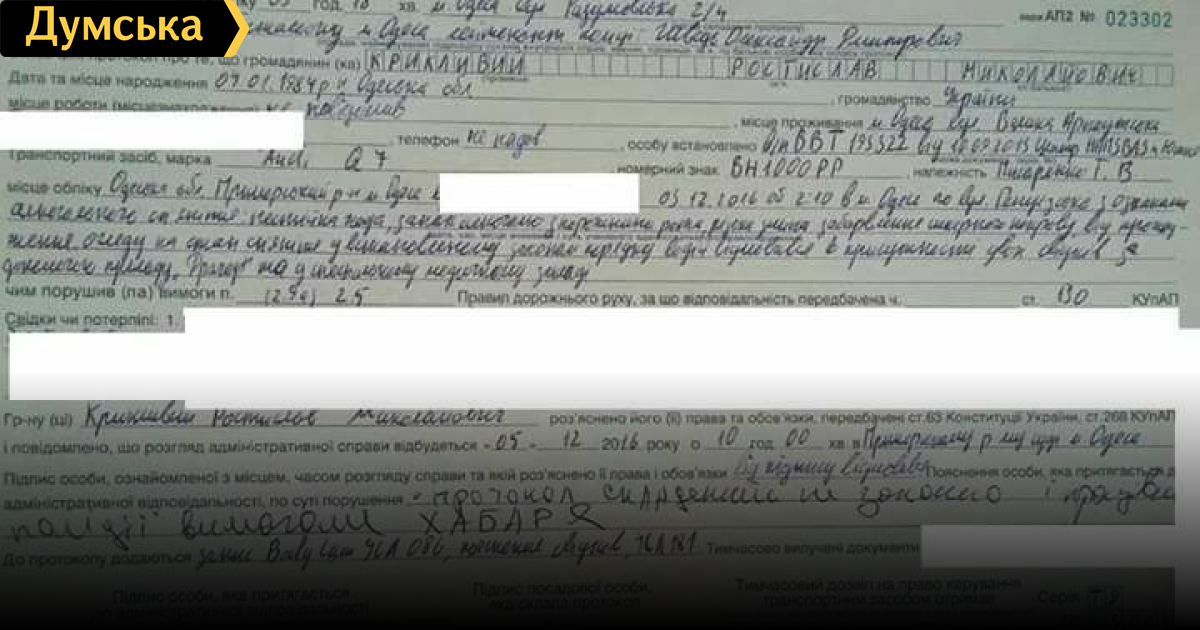 Думська
год 18 хв. м. Одеса вул. Разумовська 2/4
АП2 № 023302
м. Одеса лейтенант поліції Олександр Дмитрович
протокол про те, що громадянин (ка) КРИКЛИВИЙ РОСТИСЛАВ МИКОЛАЙОВИЧ
Дата та місце народження 07.01.1984 р.н. Одеська обл. , громадянство України
місце роботи не повідомив
, місце проживання м. Одеса вул. Велика Арнаутська
, телефон не надав , особу встановлено ВВТ 195322 від
Транспортний засіб, марка Audi Q7 , номерний знак ВН1000РР , належність Писаренко Г. В
місце обліку Одеська обл. Приморський р-н м. Одеса 03.12.2016 об 2:10 в м. Одеса по вул. з ознаками
алкогольного сп'яніння, запах алкоголю з порожнини рота, різка зміна забарвлення шкірного покрову від проход-
ження огляду на стан сп'яніння у встановленому законом порядку водій відмовився в присутності двох свідків за
допомогою приладу "Драгер" та у медичному закладі
чим порушив (ла) вимоги п. (2.9а) 2.5 Правил дорожнього руху, за що відповідальність передбачена ч. ст. 130 КУпАП
Свідки чи потерпілі: 1.
Гр-ну (ці) Крикливий Ростислав Миколайович роз'яснено його (її) права та обов'язки, передбачені ст.63 Конституції України, ст.268 КУпАП
і повідомлено, що розгляд адміністративної справи відбудеться - 05 - 12 2016 року о 10 год 00 хв. в Приморському р-ному суді м. Одеса
Підпис особи, ознайомленої з місцем, часом розгляду справи та якій роз'яснено її права і обов'язки Від підпису відмовився Пояснення особи, яка притягається д
адміністративної відповідальності, по суті порушення - протокол складений не законно і
поліції вимогали ХАБАРЯ
До протоколу додаються 16А181 Тимчасово вилучені документи
Підпис особи, яка притягається Підпис посадової особи, Тимчасовий дозвіл на право керування
до адміністративної відповідальності яка склала протокол транспортним засобом отримав Серія